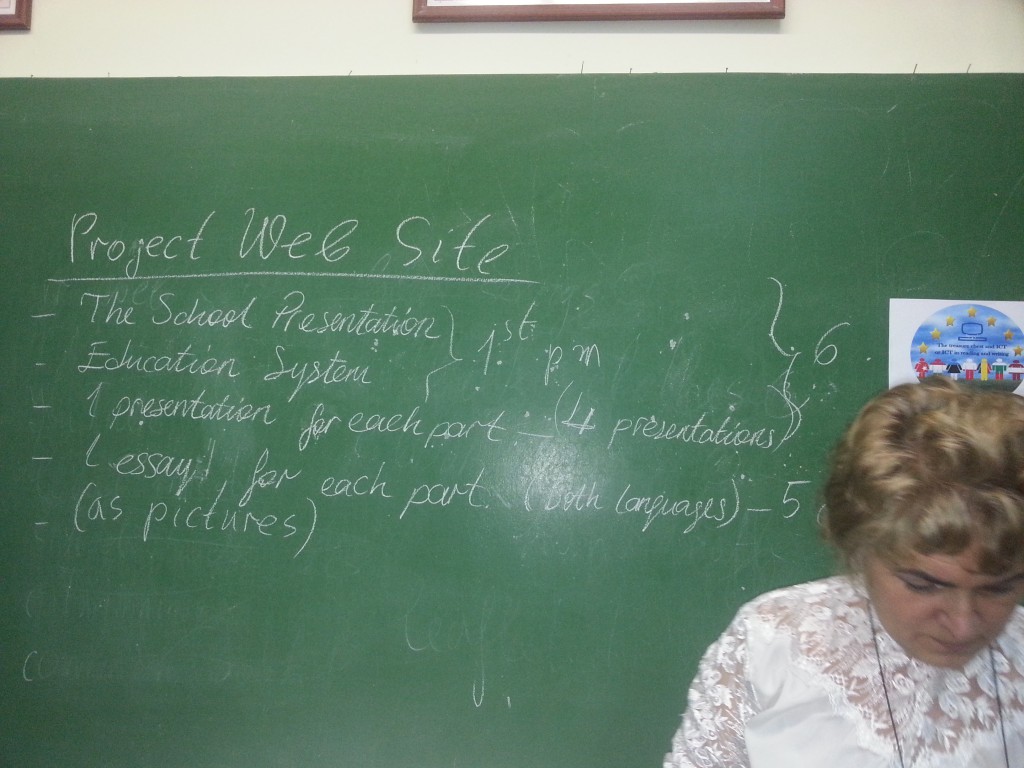 Project Web Site
- The School Presentation
- Education System
} 1st pm
- 1 presentation for each part - (4 presentations)
} 6
- 1 essay for each part. (both languages) - 5
- (as pictures)
The treasure chest and ICT
or ICT in reading and writing